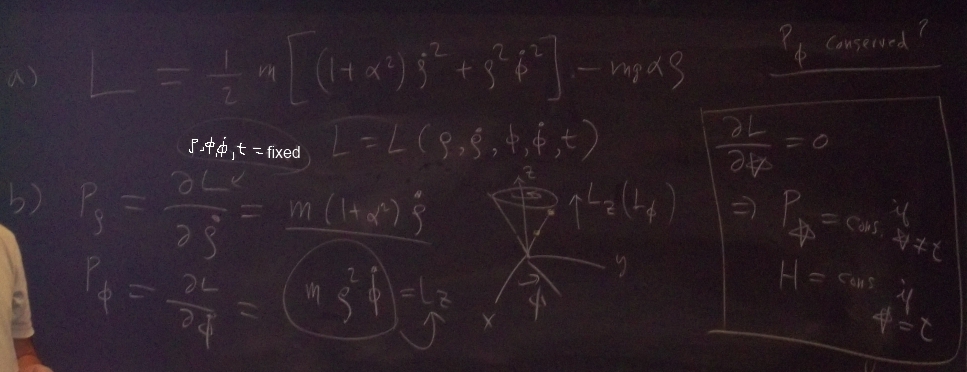 a) L = 1/2 m [(1+α²) ρ̇² + ρ² φ̇²] - mgαρ
P_φ conserved?
ρ, φ, φ̇, t = fixed
L = L(ρ, ρ̇, φ, φ̇, t)
b) P_ρ = ∂L/∂ρ̇ = m(1+α²) ρ̇
P_φ = ∂L/∂φ̇ = m ρ² φ̇ = L_z
z
↑L_z (L_φ)
y
φ
x
∂L/∂ = 0
⇒ P = cons. if ≠ t
H = cons if = t